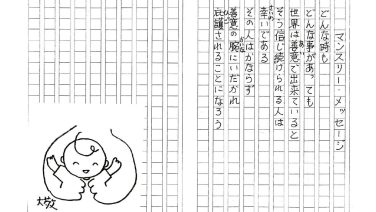 マンスリー・メッセージ
どんな時も
どんな事があっても
世界は善意で出来ていると
そう信じ続けられる人は
幸いである
その人はかならず
善意の腕にいだかれ
庇護されることになろう